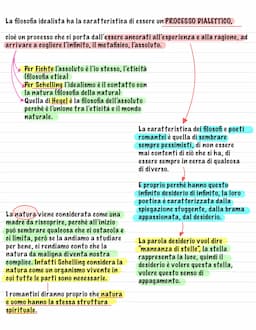 La filosofia idealista ha la caratteristica di essere un PROCESSO DIALETTICO,
cioè un processo che si porta dall'essere ancorati all'esperienza e alla ragione, ad
arrivare a cogliere l'infinito, il metafisico, l'assoluto.
Per Fichte l'assoluto è l'io stesso, l'eticità
(filosofia etica)
Per Schelling l'idealismo è il contatto con
la natura (filosofia della natura)
Quella di Hegel è la filosofia dell'assoluto
perché è l'unione tra l'eticità e il mondo
naturale.
La caratteristica dei filosofi e poeti
romantici è quella di sembrare
sempre pessimisti, di non essere
mai contenti di ciò che si ha, di
essere sempre in cerca di qualcosa
di diverso.
E proprio perché hanno questo
infinito desiderio di infinito, la loro
poetica è caratterizzata dalla
spiegazione struggente, dalla brama
appassionata, dal desiderio.
La parola desiderio vuol dire
"mancanza di stelle", la stella
rappresenta la luce, quindi il
desiderio è volere questa stella,
volere questo senso di
appagamento.
La natura viene considerata come una
madre da riscoprire, perché all'inizio
può sembrare qualcosa che ci ostacola e
ci limita, però se la andiamo a studiare
per bene, ci rendiamo conto che la natura
da maligna diventa nostra
complice. Infatti Schelling considera la
natura come un organismo vivente in
cui tutte le parti sono necessarie.
I romantici diranno proprio che natura
e uomo hanno la stessa struttura
spirituale.